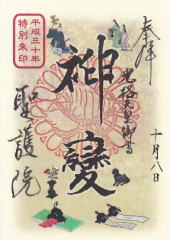 奉拝
十月八日
光格天皇御書
神變
聖護院
平成三十年
特別朱印